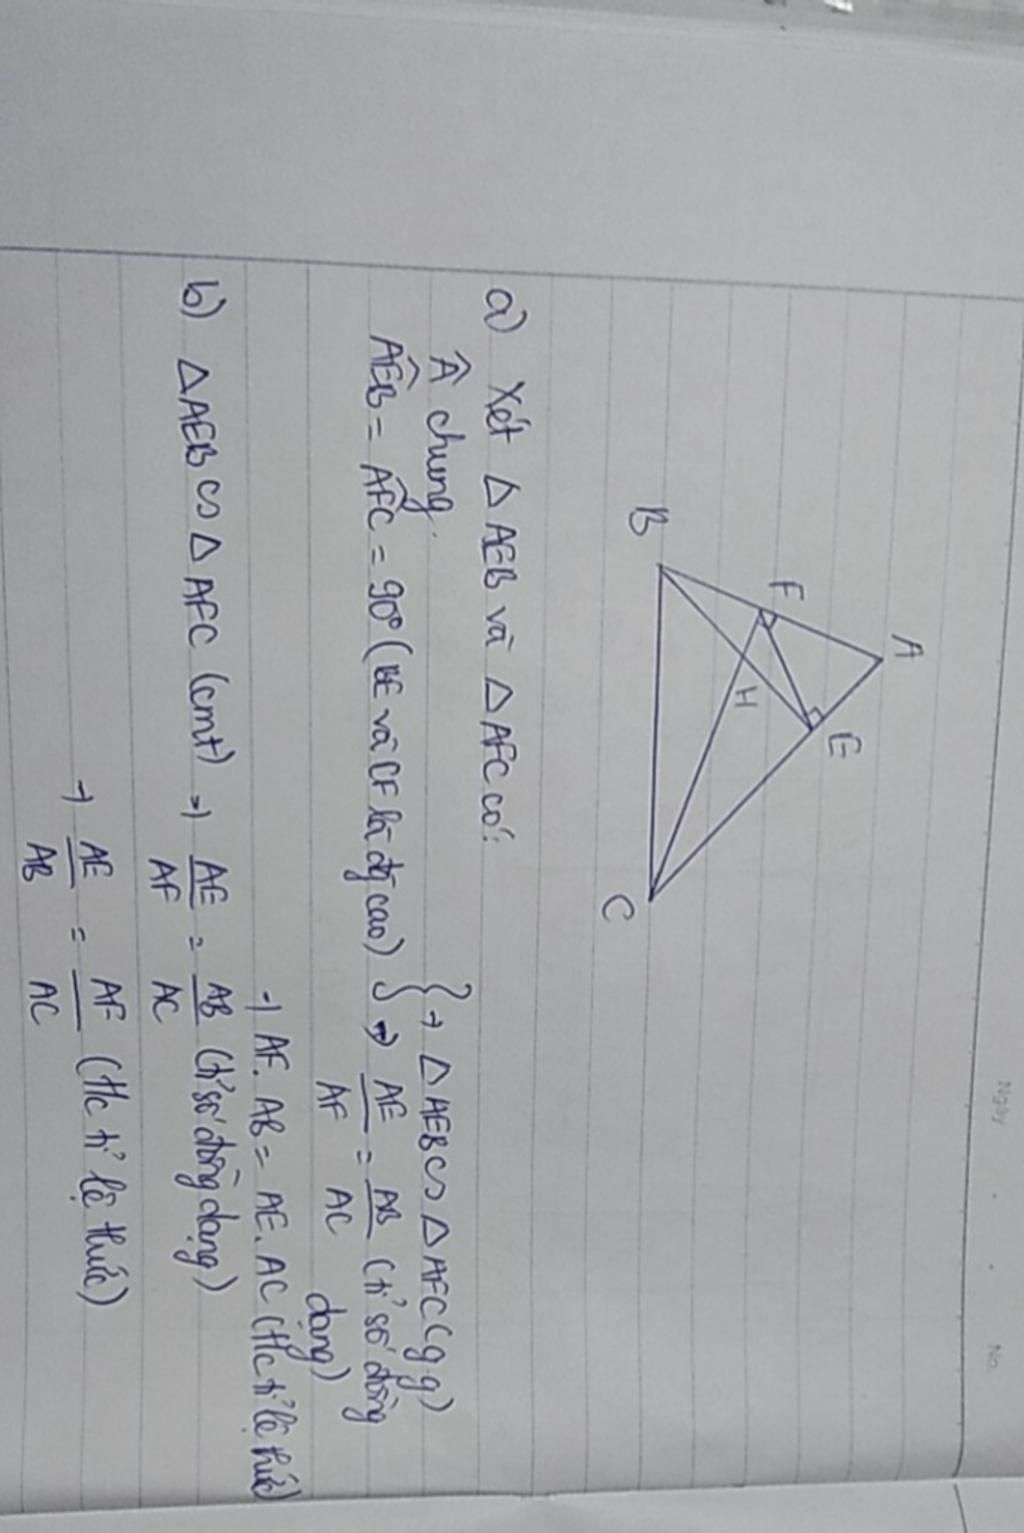 Ngày
No.
A
F
E
H
B
C
a) Xét △ AEB và △ AFC có:
Â chung.
AEB = AFC = 90° (BE và CF là đg cao)
} → △ AEB ∽ △ AFC (g.g)
→ AE/AF = AB/AC (tỉ số đồng
dạng)
→ AF. AB = AE. AC (t/c tỉ lệ thức)
b) △ AEB ∽ △ AFC (cmt) → AE/AF = AB/AC (tỉ số đồng dạng)
→ AE/AB = AF/AC (t/c tỉ lệ thức)